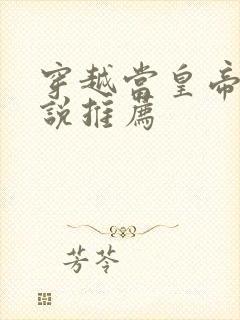 穿越當皇帝
說推薦
芳苓